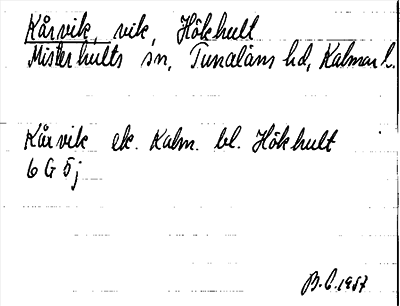 Kårvik, vik, Hökhult
Misterhults sn, Tunaläns hd, Kalmar l.
Kårvik ek. Kalm. bl. Hökhult
6 G 5 j
B.C. 1957